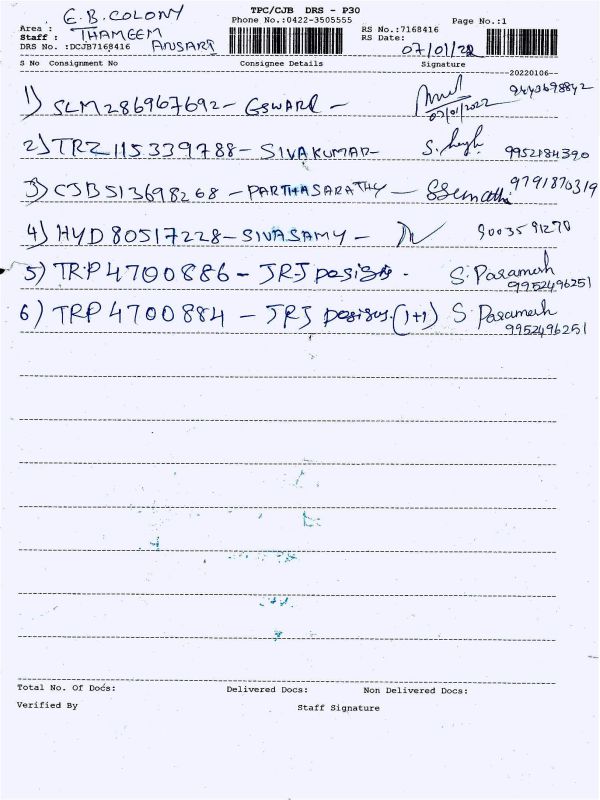 TPC/CJB DRS - P30
Area : E.B. COLONY Phone No.:0422-3505555 Page No.:1
Staff : THAMEEM ANSARI RS No.:7168416
DRS No. :DCJB7168416 RS Date: 07/01/22
S No Consignment No Consignee Details Signature
--20220106--
1) SLM286967692 - ESWARE - 07/01/2022
2) TRZ115339788 - SIVAKUMAR 9952184390
3) CJB513698268 - PARTHASARATHY - 9791870319
4) HYD80517228 - SIVASAMY - 9003591270
5) TRP4700886 - JRJ S. Paramesh
9952496251
6) TRP4700884 - JRJ (1+1) S. Paramesh
9952496251
Total No. Of Docs: Delivered Docs: Non Delivered Docs:
Verified By Staff Signature